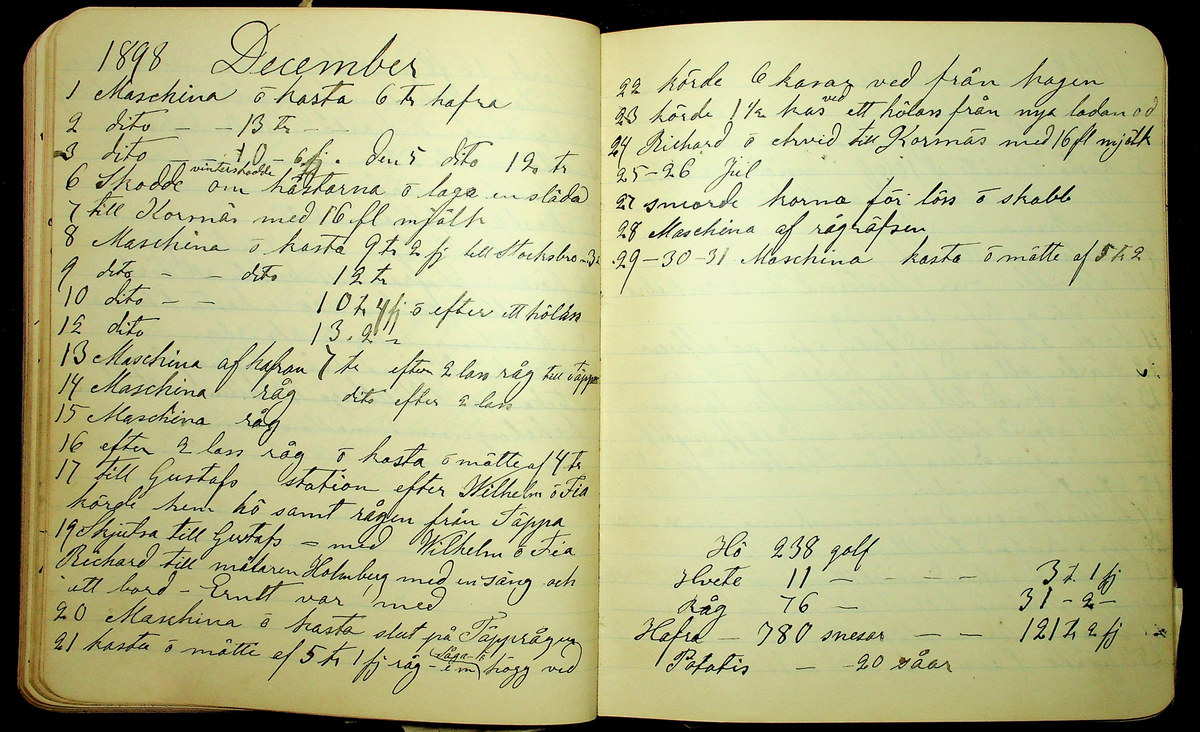 1898 December
1 Maschina ö kasta 6 tr hafra
2 dito - - 13 tr - -
3 dito - 10 - 6 fj. den 5 dito 12 tr
6 Skodde vinterskodde om hästarna ö laga en släda
7 till Kornäs med 16 fl mjölk
8 Maschina ö kasta 9 tr 2 fj till Stocksbro
9 dito - - dito 12 tr
10 dito - - 10 tr 4 fj ö efter ett hölass
12 dito 13. 2 "
13 Maschina af hafran 7 tr efter 2 lass råg till Täppa
14 Maschina råg dito efter 2 lass
15 Maschina råg
16 efter 2 lass råg ö kasta ö mätte af 4 tr
17 till Gustafs station efter Wilhelm ö Fia
körde hem hö samt rågen från Täppa
19 Skjutsa till Gustafs - med Wilhelm ö Fia
Richard till målaren Holmberg med en säng och
ett bord - Ernst var med
20 Maschina ö kasta slut på Täpprågen
21 kasta ö mätte af 5 tr 1 fj råg - em såga ö högg ved
22 körde 6 karar ved från hagen
23 körde 1 1/2 kas ved ett hölass från nya ladan
24 Richard ö Arvid till Kornäs med 16 fl mjölk
25-26 Jul
27 smorde korna för löss ö skabb
28 Maschina af rågräfsen
29-30-31 Maschina kasta ö mätte af 5 tr 2
Hö 238 golf
Hvete 11 - - - - 3 t. 1 fj
Råg 76 - 31 - 2 -
Hafra - 780 snesar - - 121 tr 2 fj
Potatis - 20 såar